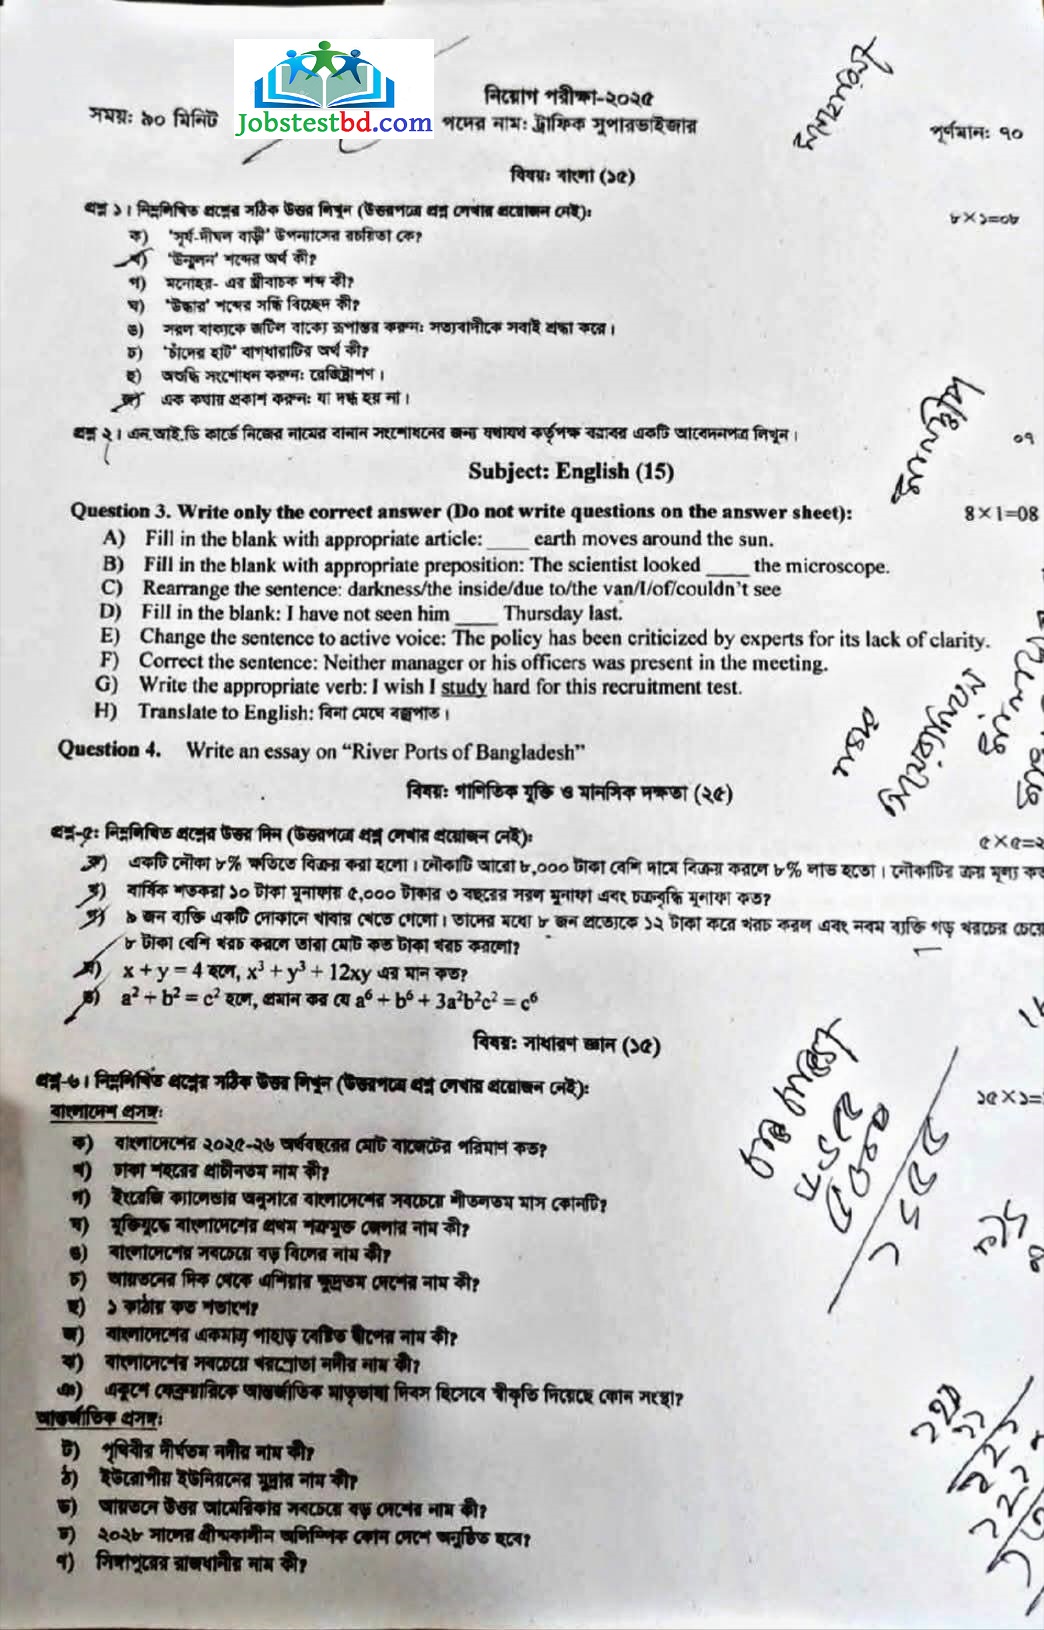 Jobstestbd.com
নিয়োগ পরীক্ষা-২০২৫
সময়: ৯০ মিনিট
পদের নাম: ট্রাফিক সুপারভাইজার
পূর্ণমান: ৭০
বিষয়: বাংলা (১৫)
প্রশ্ন ১। নিম্নলিখিত প্রশ্নের সঠিক উত্তর লিখুন (উত্তরপত্রে প্রশ্ন লেখার প্রয়োজন নেই): ৮×১=০৮
ক) 'সূর্য-দীঘল বাড়ী' উপন্যাসের রচয়িতা কে?
খ) 'উন্মূলন' শব্দের অর্থ কী?
গ) মনোহর- এর স্ত্রীবাচক শব্দ কী?
ঘ) 'উদ্ধার' শব্দের সন্ধি বিচ্ছেদ কী?
ঙ) সরল বাক্যকে জটিল বাক্যে রূপান্তর করুন: সত্যবাদীকে সবাই শ্রদ্ধা করে।
চ) 'চাঁদের হাট' বাগধারাটির অর্থ কী?
ছ) অশুদ্ধি সংশোধন করুন: রেজিষ্ট্রাশণ।
জ) এক কথায় প্রকাশ করুন: যা দগ্ধ হয় না।
প্রশ্ন ২। এন.আই.ডি কার্ডে নিজের নামের বানান সংশোধনের জন্য যথাযথ কর্তৃপক্ষ বরাবর একটি আবেদনপত্র লিখুন। ০৭
Subject: English (15)
Question 3. Write only the correct answer (Do not write questions on the answer sheet): 8×1=08
A) Fill in the blank with appropriate article: ____ earth moves around the sun.
B) Fill in the blank with appropriate preposition: The scientist looked ____ the microscope.
C) Rearrange the sentence: darkness/the inside/due to/the van/I/of/couldn't see
D) Fill in the blank: I have not seen him ____ Thursday last.
E) Change the sentence to active voice: The policy has been criticized by experts for its lack of clarity.
F) Correct the sentence: Neither manager or his officers was present in the meeting.
G) Write the appropriate verb: I wish I study hard for this recruitment test.
H) Translate to English: বিনা মেঘে বজ্রপাত।
Question 4. Write an essay on “River Ports of Bangladesh”
বিষয়: গাণিতিক যুক্তি ও মানসিক দক্ষতা (২৫)
প্রশ্ন-৫: নিম্নলিখিত প্রশ্নের উত্তর দিন (উত্তরপত্রে প্রশ্ন লেখার প্রয়োজন নেই): ৫×৫=২
ক) একটি নৌকা ৮% ক্ষতিতে বিক্রয় করা হলো। নৌকাটি আরো ৮,০০০ টাকা বেশি দামে বিক্রয় করলে ৮% লাভ হতো। নৌকাটির ক্রয় মূল্য কত
খ) বার্ষিক শতকরা ১০ টাকা মুনাফায় ৫,০০০ টাকার ৩ বছরের সরল মুনাফা এবং চক্রবৃদ্ধি মুনাফা কত?
গ) ৯ জন ব্যক্তি একটি দোকানে খাবার খেতে গেলো। তাদের মধ্যে ৮ জন প্রত্যেকে ১২ টাকা করে খরচ করল এবং নবম ব্যক্তি গড় খরচের চেয়ে
৮ টাকা বেশি খরচ করলে তারা মোট কত টাকা খরচ করলো?
ঘ) x + y = 4 হলে, x³ + y³ + 12xy এর মান কত?
ঙ) a² + b² = c² হলে, প্রমান কর যে a⁶ + b⁶ + 3a²b²c² = c⁶
বিষয়: সাধারণ জ্ঞান (১৫)
প্রশ্ন-৬। নিম্নলিখিত প্রশ্নের সঠিক উত্তর লিখুন (উত্তরপত্রে প্রশ্ন লেখার প্রয়োজন নেই): ১৫×১=
বাংলাদেশ প্রসঙ্গ:
ক) বাংলাদেশের ২০২৫-২৬ অর্থবছরের মোট বাজেটের পরিমাণ কত?
খ) ঢাকা শহরের প্রাচীনতম নাম কী?
গ) ইংরেজি ক্যালেন্ডার অনুসারে বাংলাদেশের সবচেয়ে শীতলতম মাস কোনটি?
ঘ) মুক্তিযুদ্ধে বাংলাদেশের প্রথম শত্রুমুক্ত জেলার নাম কী?
ঙ) বাংলাদেশের সবচেয়ে বড় বিলের নাম কী?
চ) আয়তনের দিক থেকে এশিয়ার ক্ষুদ্রতম দেশের নাম কী?
ছ) ১ কাঠায় কত শতাংশ?
জ) বাংলাদেশের একমাত্র পাহাড় বেষ্টিত দ্বীপের নাম কী?
ঝ) বাংলাদেশের সবচেয়ে খরস্রোতা নদীর নাম কী?
ঞ) একুশে ফেব্রুয়ারিকে আন্তর্জাতিক মাতৃভাষা দিবস হিসেবে স্বীকৃতি দিয়েছে কোন সংস্থা?
আন্তর্জাতিক প্রসঙ্গ:
ট) পৃথিবীর দীর্ঘতম নদীর নাম কী?
ঠ) ইউরোপীয় ইউনিয়নের মুদ্রার নাম কী?
ড) আয়তনে উত্তর আমেরিকার সবচেয়ে বড় দেশের নাম কী?
ঢ) ২০২৮ সালের গ্রীষ্মকালীন অলিম্পিক কোন দেশে অনুষ্ঠিত হবে?
ণ) সিঙ্গাপুরের রাজধানীর নাম কী?